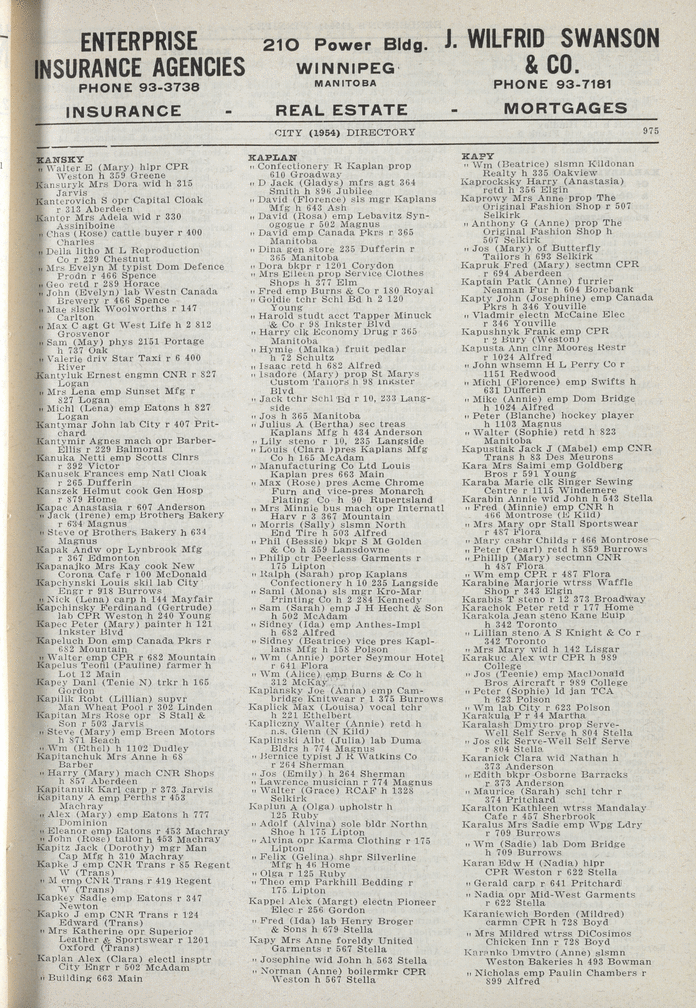 ENTERPRISE
INSURANCE AGENCIES
PHONE 93-3738
210 Power Bldg.
WINNIPEG
MANITOBA
J. WILFRID SWANSON
& CO.
PHONE 93-7181
INSURANCE - REAL ESTATE - MORTGAGES
CITY (1954) DIRECTORY 975
KANSKY
" Walter E (Mary) hlpr CPR
Weston h 359 Greene
Kansuryk Mrs Dora wid h 315
Jarvis
Kanterovich S opr Capital Cloak
r 313 Aberdeen
Kantor Mrs Adela wid r 330
Assiniboine
" Chas (Rose) cattle buyer r 400
Charles
" Della litho M L Reproduction
Co r 229 Chestnut
" Mrs Evelyn M typist Dom Defence
Prodn r 466 Spence
" Geo retd r 289 Horace
" John (Evelyn) lab Westn Canada
Brewery r 466 Spence
" Mae slsclk Woolworths r 147
Carlton
" Max C agt Gt West Life h 2 812
Grosvenor
" Sam (May) phys 2151 Portage
h 737 Oak
" Valerie driv Star Taxi r 6 400
River
Kantyluk Ernest engmn CNR r 827
Logan
" Mrs Lena emp Sunset Mfg r
827 Logan
" Michl (Lena) emp Eatons h 827
Logan
Kantymar John lab City r 407 Prit-
chard
Kantymir Agnes mach opr Barber-
Ellis r 229 Balmoral
Kanuka Netti emp Scotts Clnrs
r 392 Victor
Kanusek Frances emp Natl Cloak
r 265 Dufferin
Kanszek Helmut cook Gen Hosp
r 879 Home
Kapac Anastasia r 607 Anderson
" Jack (Irene) emp Brothers Bakery
r 634 Magnus
" Steve of Brothers Bakery h 634
Magnus
Kapak Andw opr Lynbrook Mfg
r 367 Edmonton
Kapanajko Mrs Kay cook New
Corona Cafe r 100 McDonald
Kapchynski Louis skil lab City
Engr r 918 Burrows
" Nick (Lena) carp h 144 Mayfair
Kapchinsky Ferdinand (Gertrude)
lab CPR Weston h 240 Young
Kapec Peter (Mary) painter h 121
Inkster Blvd
Kapeluch Don emp Canada Pkrs r
682 Mountain
" Walter emp CPR r 682 Mountain
Kapelus Teofil (Pauline) farmer h
Lot 12 Main
Kapey Danl (Tenie N) trkr h 165
Gordon
Kapilik Robt (Lillian) supvr
Man Wheat Pool r 302 Linden
Kapitan Mrs Rose opr S Stall &
Son r 503 Jarvis
" Steve (Mary) emp Breen Motors
h 871 Beach
" Wm (Ethel) h 1102 Dudley
Kapitanchuk Mrs Anne h 68
Barber
" Harry (Mary) mach CNR Shops
h 857 Aberdeen
Kapitanuik Karl carp r 373 Jarvis
Kapitany A emp Perths r 453
Machray
" Alex (Mary) emp Eatons h 777
Dominion
" Eleanor emp Eatons r 453 Machray
" John (Rose) tailor h 453 Machray
Kapitz Jack (Dorothy) mgr Man
Cap Mfg h 310 Machray
Kapke J emp CNR Trans r 85 Regent
W (Trans)
" M emp CNR Trans r 419 Regent
W (Trans)
Kapkey Sadie emp Eatons r 347
Newton
Kapko J emp CNR Trans r 124
Edward (Trans)
" Mrs Katherine opr Superior
Leather & Sportswear r 1201
Oxford (Trans)
Kaplan Alex (Clara) electl insptr
City Engr r 502 McAdam
" Building 663 Main
KAPLAN
" Confectionery R Kaplan prop
610 Groadway
" D Jack (Gladys) mfrs agt 364
Smith h 896 Jubilee
" David (Florence) sls mgr Kaplans
Mfg h 643 Ash
" David (Rosa) emp Lebavitz Syn-
ogogue r 502 Magnus
" David emp Canada Pkrs r 365
Manitoba
" Dina gen store 235 Dufferin r
365 Manitoba
" Dora bkpr r 1201 Corydon
" Mrs Ellen prop Service Clothes
Shops h 377 Elm
" Fred emp Burns & Co r 180 Royal
" Goldie tchr Schl Bd h 2 120
Young
" Harold studt acct Tapper Minuck
& Co r 98 Inkster Blvd
" Harry clk Economy Drug r 365
Manitoba
" Hymie (Malka) fruit pedlar
h 72 Schultz
" Isaac retd h 682 Alfred
" Isadore (Mary) prop St Mary's
Custom Tailors h 98 Inkster
Blvd
" Jack tchr Schl Bd r 10, 233 Lang-
side
" Jos h 365 Manitoba
" Julius A (Bertha) sec treas
Kaplans Mfg h 434 Anderson
" Lily steno r 10, 235 Langside
" Louis (Clara )pres Kaplans Mfg
Co h 165 McAdam
" Manufacturing Co Ltd Louis
Kaplan pres 663 Main
" Max (Rose) pres Acme Chrome
Furn and vice-pres Monarch
Plating Co h 90 Rupertsland
" Mrs Minnie bus mach opr Internatl
Harv r 3 367 Mountain
" Morris (Sally) slsmn North
End Tire h 503 Alfred
" Phil (Bessie) bkpr S M Golden
& Co h 359 Lansdowne
" Philip ctr Peerless Garments r
175 Lipton
" Ralph (Sarah) prop Kaplans
Confectionery h 10 235 Langside
" Saml (Mona) sls mgr Kro-Mar
Printing Co h 2 284 Kennedy
" Sam (Sarah) emp J H Hecht & Son
h 502 McAdam
" Sidney (Ida) emp Anthes-Impl
h 682 Alfred
" Sidney (Beatrice) vice pres Kapl-
lans Mfg h 158 Polson
" Wm (Annie) porter Seymour Hotel
r 641 Flora
" Wm (Alice) emp Burns & Co h
312 McKay
Kaplansky Joe (Anna) emp Cam-
bridge Knitwear r 1 375 Burrows
Kaplick Max (Louisa) vocal tchr
h 221 Ethelbert
Kapliczny Walter (Annie) retd h
n.s. Glenn (N Kild)
Kaplinski Albt (Julia) lab Duma
Bldrs h 774 Magnus
" Bernice typist J R Watkins Co
r 264 Sherman
" Jos (Emily) h 264 Sherman
" Lawrence musician r 774 Magnus
" Walter (Grace) RCAF h 1328
Selkirk
Kaplun A (Olga) upholstr h
125 Ruby
" Adolf (Alvina) sole bldr Northn
Shoe h 175 Lipton
" Alvina opr Karma Clothing r 175
Lipton
" Felix (Gelina) shpr Silverline
Mfg h 46 Home
" Olga r 125 Ruby
" Theo emp Parkhill Bedding r
175 Lipton
Kappel Alex (Margt) electn Pioneer
Elec r 256 Gordon
" Fred (Ida) lab Henry Broger
& Sons h 679 Stella
Kapy Mrs Anne foreldy United
Garments r 567 Stella
" Josephine wid John h 563 Stella
" Norman (Anne) boilermkr CPR
Weston h 567 Stella
KAPY
" Wm (Beatrice) slsmn Kildonan
Realty h 335 Oakview
Kaprocksky Harry (Anastasia)
retd h 356 Elgin
Kaprowy Mrs Anne prop The
Original Fashion Shop r 507
Selkirk
" Anthony G (Anne) prop The
Original Fashion Shop h
507 Selkirk
" Jos (Mary) of Butterfly
Tailors h 693 Selkirk
Kapruk Fred (Mary) sectmn CPR
r 694 Aberdeen
Kaptain Patk (Anne) furrier
Neaman Fur h 604 Borebank
Kapty John (Josephine) emp Canada
Pkrs h 346 Youville
" Vladmir electn McCaine Elec
r 346 Youville
Kapushnyk Frank emp CPR
r 2 Bury (Weston)
Kapusta Ann clnr Moores Restr
r 1024 Alfred
" John whsemn H L Perry Co r
1151 Redwood
" Michl (Florence) emp Swifts h
631 Dufferin
" Mike (Annie) emp Dom Bridge
h 1024 Alfred
" Peter (Blanche) hockey player
h 1103 Magnus
" Walter (Sophie) retd h 823
Manitoba
Kapustiak Jack J (Mabel) emp CNR
Trans h 83 Des Meurons
Kara Mrs Saimi emp Goldberg
Bros r 591 Young
Karaba Marie clk Singer Sewing
Centre r 1115 Windemere
Karabin Annie wid John h 543 Stella
" Fred (Minnie) emp CNR h
466 Montrose (E Kild)
" Mrs Mary opr Stall Sportswear
r 487 Flora
" Mary cashr Childs r 466 Montrose
" Peter (Pearl) retd h 859 Burrows
" Phillip (Mary) sectmn CNR
h 487 Flora
" Wm emp CPR r 487 Flora
Karabine Marjorie wtrss Waffle
Shop r 343 Elgin
Karabis T steno r 12 373 Broadway
Karachok Peter retd r 177 Home
Karakola Jean steno Kane Euip
h 342 Toronto
" Lillian steno A S Knight & Co r
342 Toronto
" Mrs Mary wid h 142 Lisgar
Karakuc Alex wtr CPR h 989
College
" Jos (Teenie) emp MacDonald
Bros Aircraft r 989 College
" Peter (Sophie) ld jan TCA
h 623 Polson
" Wm lab City r 623 Polson
Karakula P r 44 Martha
Karalash Dmytro prop Serve-
Well Self Serve h 804 Stella
" Jos clk Serve-Well Self Serve
r 804 Stella
Karanick Clara wid Nathan h
373 Anderson
" Edith bkpr Osborne Barracks
r 373 Anderson
" Maurice (Sarah) schl tchr r
374 Pritchard
Karalton Kathleen wtrss Mandalay
Cafe r 457 Sherbrook
Karalus Mrs Sadie emp Wpg Ldry
r 709 Burrows
" Wm (Sadie) lab Dom Bridge
h 709 Burrows
Karan Edw H (Nadia) hlpr
CPR Weston r 622 Stella
" Gerald carp r 641 Pritchard
" Nadia opr Mid-West Garments
r 622 Stella
Karaniewich Borden (Mildred)
carmn CPR h 728 Boyd
" Mrs Mildred wtrss DiCosimos
Chicken Inn r 728 Boyd
Karanko Dmytro (Anne) slsmn
Weston Bakeries h 493 Bowman
" Nicholas emp Paulin Chambers r
899 Alfred